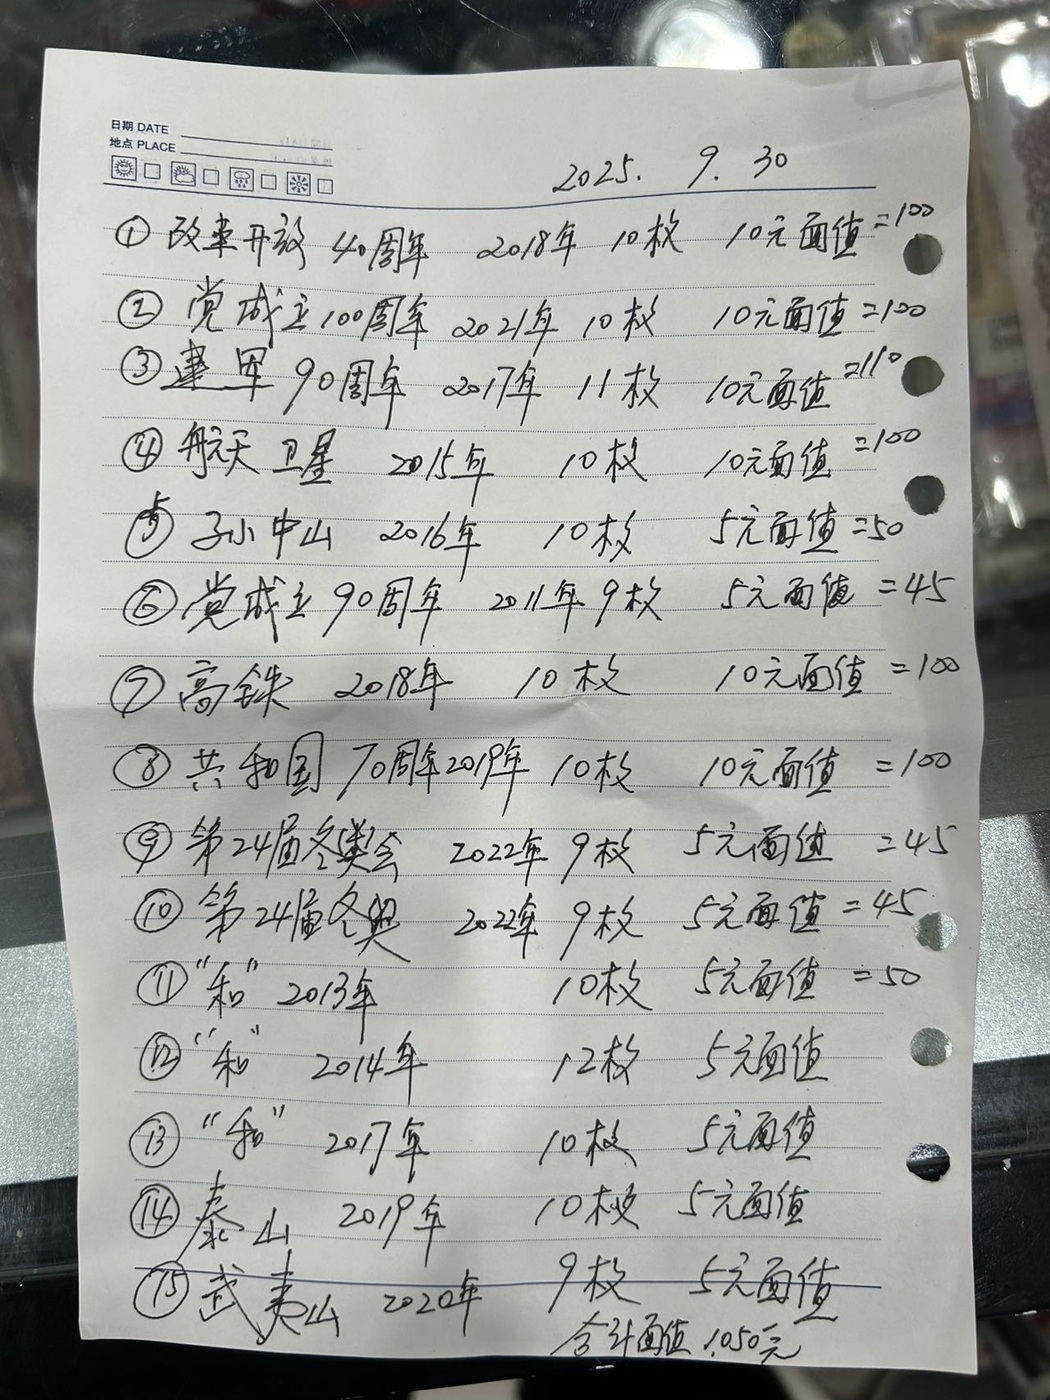 日期 DATE
地点 PLACE
2025. 9. 30
① 改革开放 40周年 2018年 10枚 10元面值=100
② 党成立100周年 2021年 10枚 10元面值=100
③ 建军 90周年 2017年 11枚 10元面值=110
④ 航天卫星 2015年 10枚 10元面值=100
⑤ 孙中山 2016年 10枚 5元面值=50
⑥ 党成立90周年 2011年 9枚 5元面值=45
⑦ 高铁 2018年 10枚 10元面值=100
⑧ 共和国 70周年 2019年 10枚 10元面值=100
⑨ 第24届冬奥会 2022年 9枚 5元面值=45
⑩ 第24届冬奥 2022年 9枚 5元面值=45
⑪ “和” 2013年 10枚 5元面值=50
⑫ “和” 2014年 12枚 5元面值
⑬ “和” 2017年 10枚 5元面值
⑭ 泰山 2019年 10枚 5元面值
⑮ 武夷山 2020年 9枚 5元面值
合计面值 1,050元